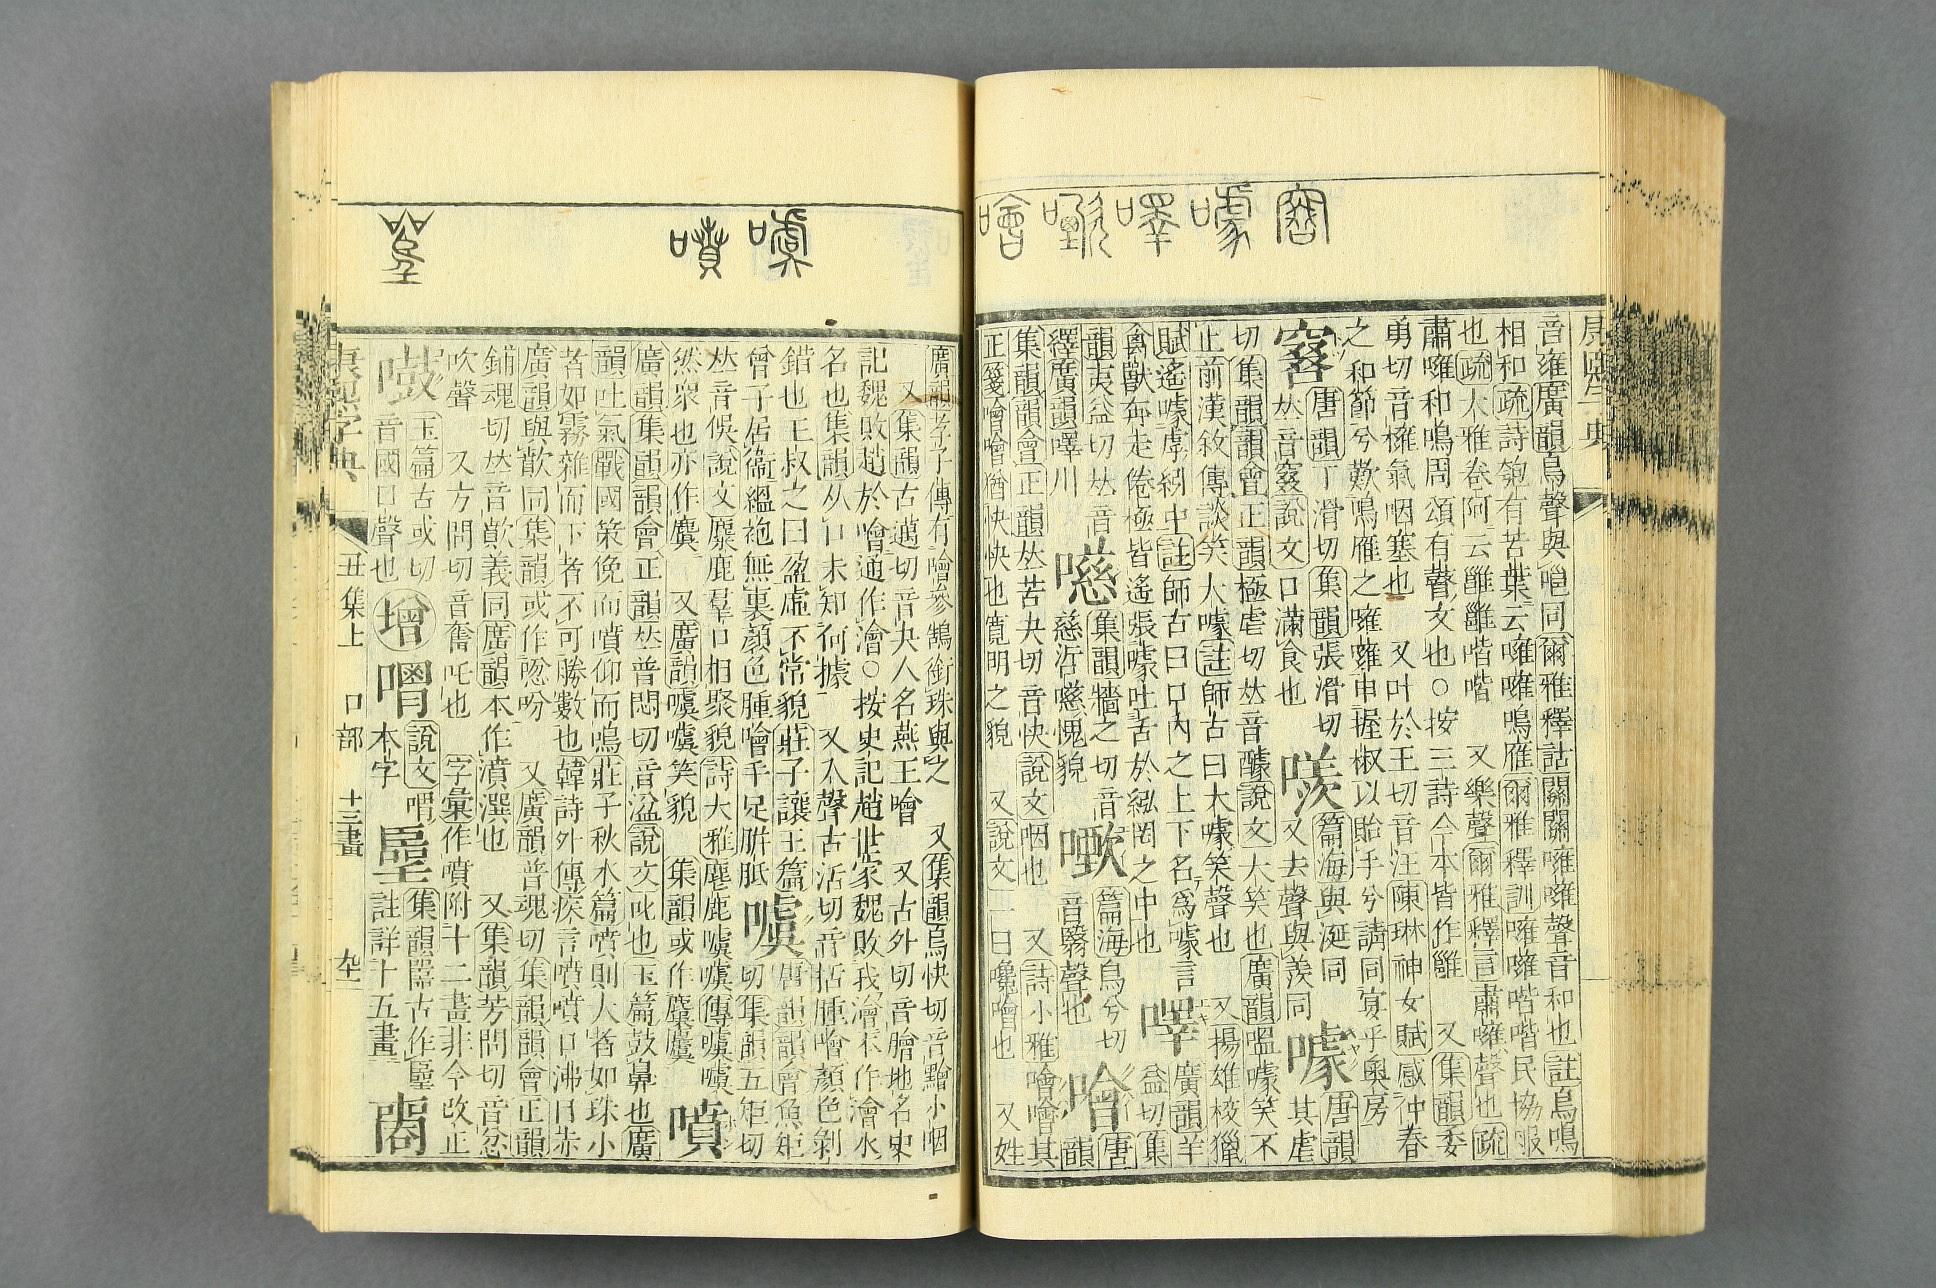 音雍廣韻鳥聲與嗈同爾雅釋詁關關噰噰聲音和也註鳥鳴
相和疏詩匏有苦葉云噰噰鳴雁爾雅釋訓噰噰喈喈民協服
也疏大雅卷阿云雝雝喈喈 又樂聲爾雅釋言肅噰聲也疏
肅噰和鳴周頌有瞽文也○按三詩今本皆作雝 又集韻委
勇切音擁氣咽塞也 又叶於王切音汪陳琳神女賦感仲春
之和節兮歎鳴雁之噰噰申握椒以貽予兮請同宴乎奧房
唐韻丁滑切集韻張滑切
𠀤音窡說文口滿食也
篇海與涎同
又去聲與羨同
噱
唐韻
其虐
切集韻韻會正韻極虐切𠀤音醵說文大笑也廣韻嗢噱笑不
止前漢敘傳談笑大噱註師古曰大噱笑聲也 又揚雄校獵
賦遙噱虖紭中註師古曰口內之上下名爲噱言
禽獸奔走倦極皆遙張噱吐舌於紭罔之中也
噿
廣韻羊
益切集
韻夷益切𠀤音
繹廣韻㘁川
集韻牆之切音
慈㴊嗞愧貌
篇海烏兮切
音鷖聲也
噲
唐
韻
集韻韻會正韻𠀤苦夬切音快說文咽也 又詩小雅噲噲其
正箋噲噲猶快快也寬明之貌 又說文一曰嚵噲也 又姓
廣韻孝子傳有噲參鶴銜珠與之 又集韻烏快切音黵小咽
又集韻古邁切音夬人名燕王噲 又古外切音膾地名史
記魏敗趙於噲通作澮○按史記趙世家魏敗我澮本作澮水
名也集韻从口未知何據 又入聲古活切音括腫噲顏色剝
錯也王叔之曰盈虛不常貌莊子讓王篇
曾子居衞縕袍無裏顏色腫噲手足胼胝
噳
唐韻韻會魚矩
切集韻五矩切
𠀤音俁說文麋鹿羣口相聚貌詩大雅麀鹿噳噳傳噳噳
然衆也亦作麌 又廣韻噳噳笑貌 集韻或作麜麌
噴
廣韻集韻韻會正韻𠀤普悶切音湓說文吒也玉篇鼓鼻也廣
韻吐氣戰國策俛而噴仰而鳴莊子秋水篇噴則大者如珠小
者如霧雜而下者不可勝數也韓詩外傳疾言噴噴口沸目赤
廣韻與歕同集韻或作㖹吩 又廣韻普魂切集韻韻會正韻
鋪魂切𠀤音歕義同廣韻本作濆潠也 又集韻芳問切音忿
吹聲 又方問切音奮吒也 字彙作噴附十二畫非今改正
玉篇古或切
音國口聲也
增
說文喟
本字
集韻嚚古作
註詳十五畫
康熙字典 丑集上 口部 十三畫